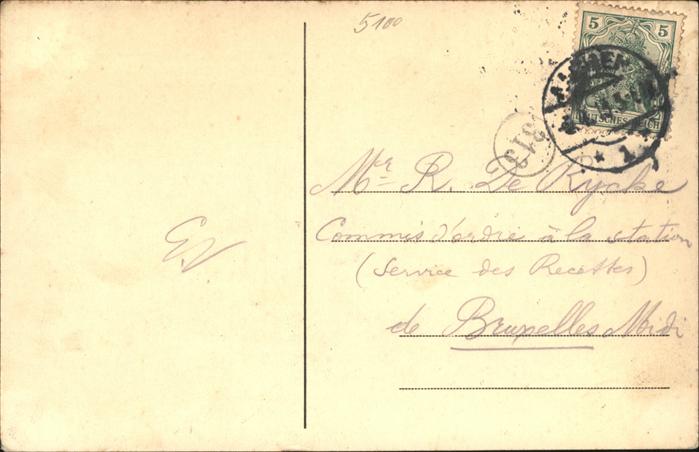 5100
5 5
DEUTSCHES REICH
1
1813
Mr. R. De Rycke
Commis d'ordre à la station
(Service des Recettes)
de Bruxelles Midi
EV